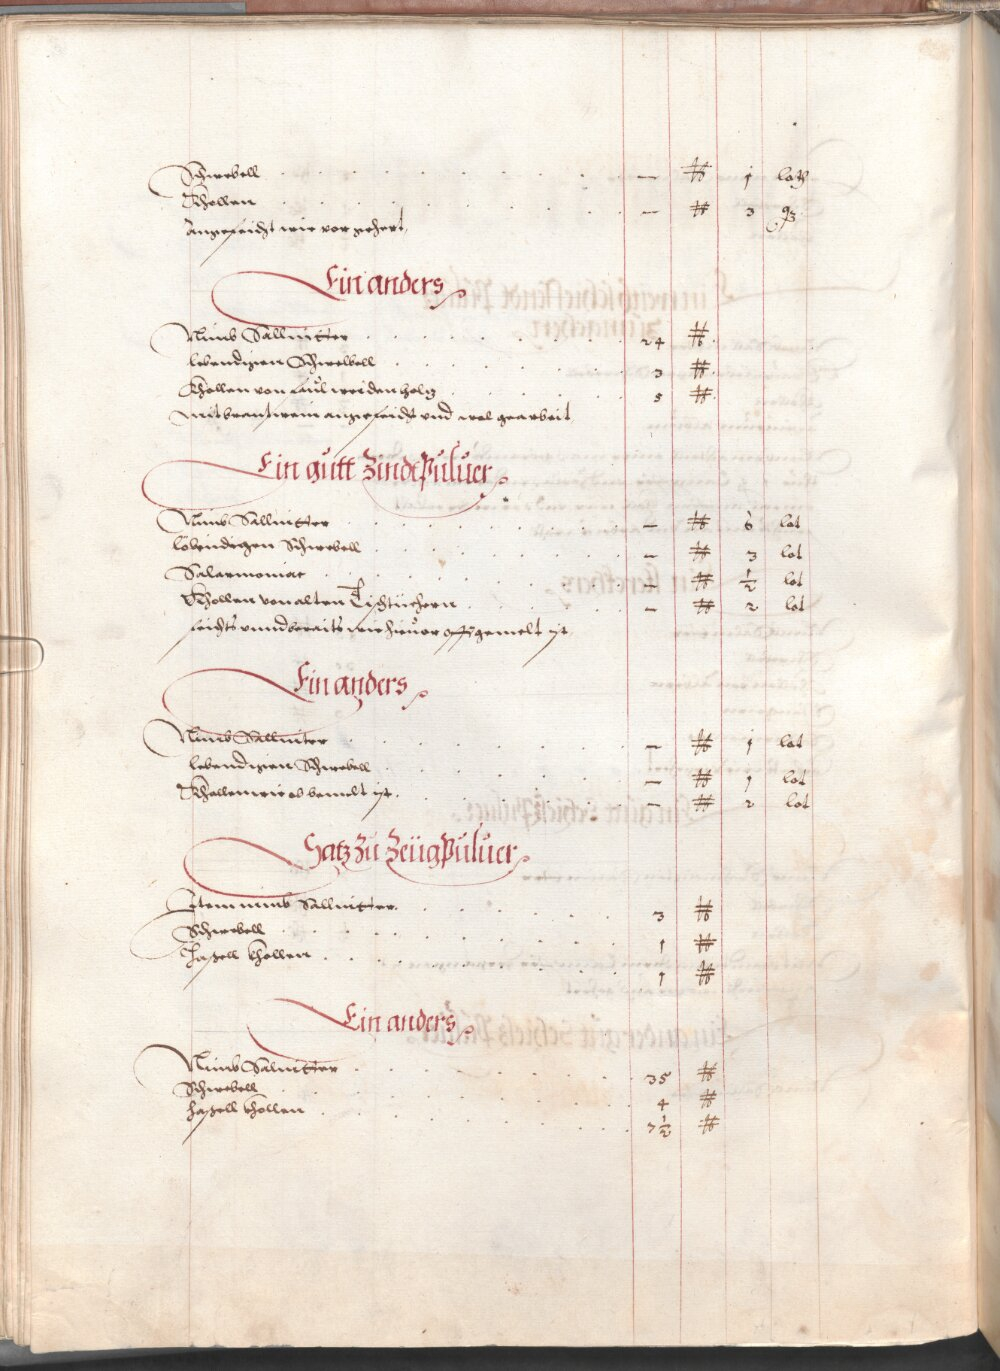 Schwebell . . . . . . . . . . . — ℔ 1 lott
Khollen . . . . . . . . . . . — ℔ 3 q
Angefeicht wie vor gehert.
Ein anders
Nimb Sallnitter . . . . . . . . 24 ℔.
lebendigen Schwebell . . . . . . . 3 ℔.
Khollen von faul weiden holtz . . . . . 5 ℔.
mit brantwein angefeicht vnd wol gearbeit.
Ein gutt Zindtpuluer
Nimb Sallnitter . . . . . . . . — ℔ 6 lot
lebendigen Schwebell . . . . . . . — ℔ 3 lot
Salarmoniac . . . . . . . . — ℔ ½ lot
Khollen von alten Tischtüchern . . . . . — ℔ 2 lot
feichts vnnd beraits wie hieuor offt gemelt ist.
Ein anders
Nimb Sallniter . . . . . . . . — ℔ 1 lot
lebendigen Schwebell . . . . . . . — ℔ 1 lot
Khollen wie ob bemelt ist. . . . . . . — ℔ 2 lot
Satz zu Zeügpuluer
Item nimb Sallnitter. . . . . . . 3 ℔
Schwebell . . . . . . . . . . 1 ℔
Haßell khollen . . . . . . . . . 1 ℔
Ein anders
Nimb Salnitter . . . . . . . . 35 ℔
Schwebell . . . . . . . . . . 4 ℔
haßell khollen . . . . . . . . . 7½ ℔